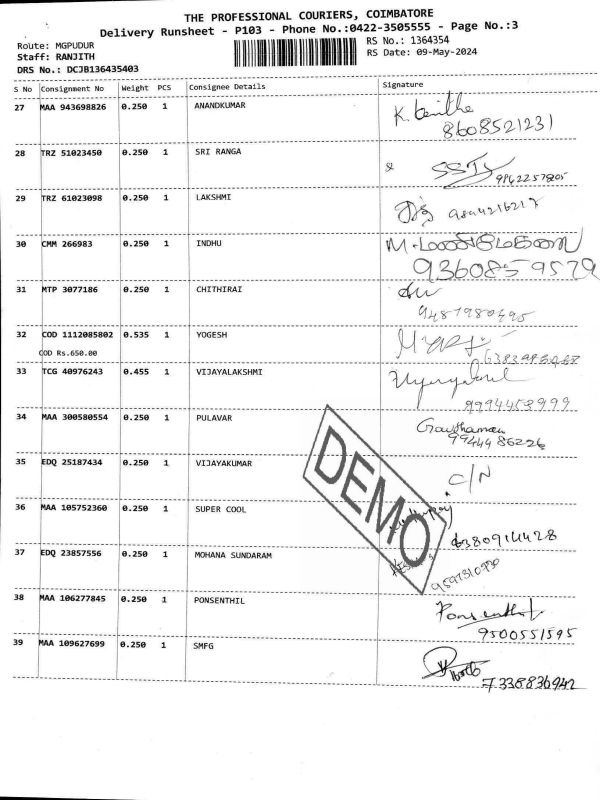 THE PROFESSIONAL COURIERS, COIMBATORE
Delivery Runsheet - P103 - Phone No.:0422-3505555 - Page No.:3
Route: MGPUDUR RS No.: 1364354
Staff: RANJITH RS Date: 09-May-2024
DRS No.: DCJB136435403
S No Consignment No Weight PCS Consignee Details Signature
27 MAA 943698826 0.250 1 ANANDKUMAR
8608521231
28 TRZ 51023450 0.250 1 SRI RANGA
29 TRZ 61023098 0.250 1 LAKSHMI
30 CMM 266983 0.250 1 INDHU
9360859579
31 MTP 3077186 0.250 1 CHITHIRAI
32 COD 1112085802 0.535 1 YOGESH
COD Rs.650.00
33 TCG 40976243 0.455 1 VIJAYALAKSHMI
34 MAA 300580554 0.250 1 PULAVAR Gowthaman
9944486226
35 EDQ 25187434 0.250 1 VIJAYAKUMAR C/N
36 MAA 105752360 0.250 1 SUPER COOL
6380914428
37 EDQ 23857556 0.250 1 MOHANA SUNDARAM
38 MAA 106277845 0.250 1 PONSENTHIL Ponsenthil
9500551595
39 MAA 109627699 0.250 1 SMFG
7338836942
DEMO